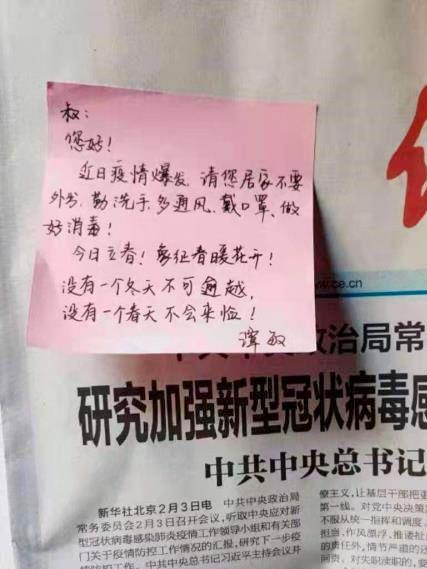 叔:
您好!
近日疫情爆发,请您居家不要
外出,勤洗手,多通风,戴口罩,做
好消毒!
今日立春!象征春暖花开!
没有一个冬天不可逾越,
没有一个春天不会来临!
谭敏
w.ce.cn
政治局常
研究加强新型冠状病毒感
中共中央总书记
新华社北京2月3日电 中共中央政治局
常务委员会2月3日召开会议,听取中央应对新
型冠状病毒感染肺炎疫情工作领导小组和有关部
门关于疫情防控工作情况的汇报,研究下一步疫
情防控工作。中共中央总书记习近平主持会议并
僚主义,让基层干部把
第一线。对党中央决策
不服从统一指挥和调度、
担当、作风漂浮、推诿扯
的责任外,情节严重的还
问责。对失职渎职的,